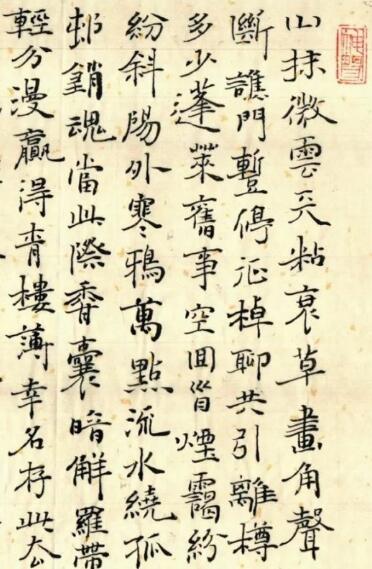 山抹微雲天粘衰草畫角聲
斷譙門暫停征棹聊共引離樽
多少蓬萊舊事空回首煙靄紛
紛斜陽外寒鴉萬點流水繞孤
邨銷魂當此際香囊暗解羅帶
輕分漫贏得青樓薄幸名存此去